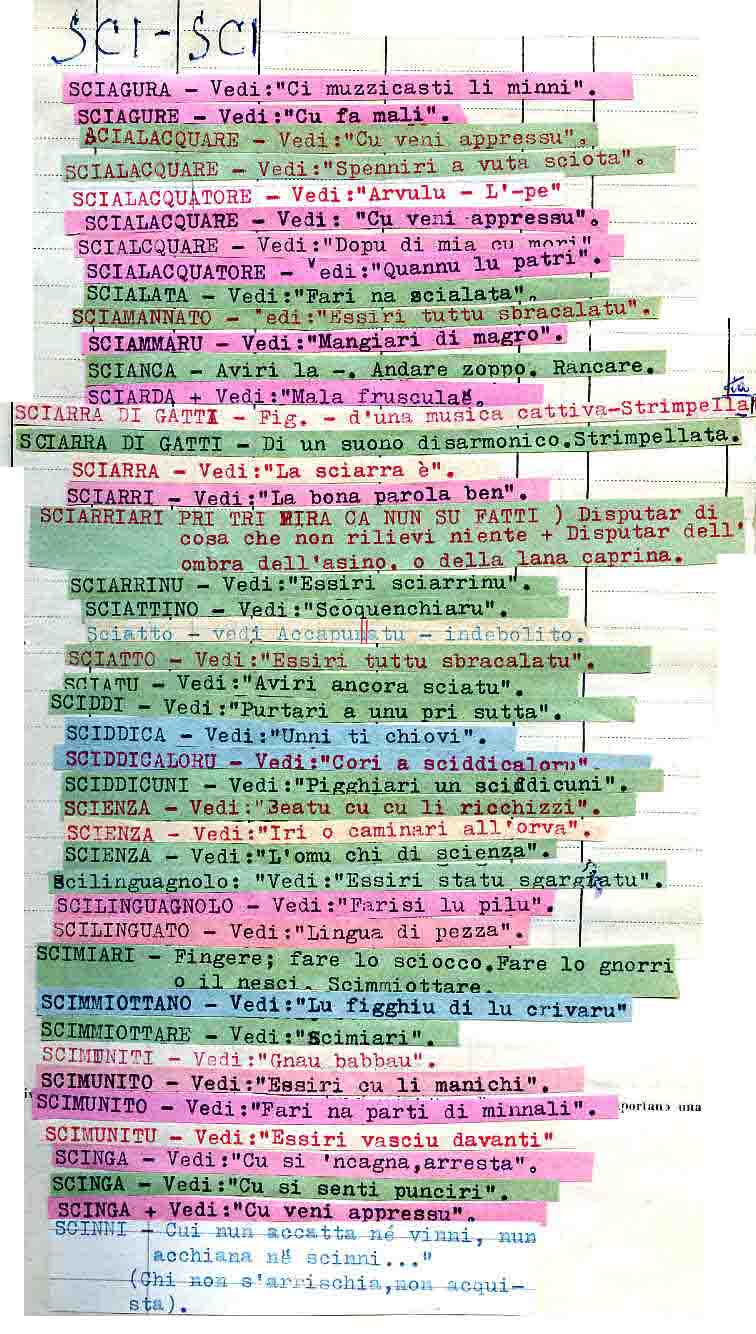 SCI-SCI
SCIAGURA - Vedi:"Ci muzzicasti li minni".
SCIAGURE - Vedi:"Cu fa mali".
SCIALACQUARE - Vedi:"Cu veni appressu".
SCIALACQUARE - Vedi:"Spenniri a vuta sciota".
SCIALACQUATORE - Vedi:"Arvulu - L'-pe"
SCIALACQUARE - Vedi: "Cu veni appressu".
SCIALCQUARE - Vedi:"Dopu di mia cu mori"
SCIALACQUATORE - Vedi:"Quannu lu patri".
SCIALATA - Vedi:"Fari na scialata".
SCIAMANNATO - "edi:"Essiri tuttu sbracalatu".
SCIAMMARU - Vedi:"Mangiari di magro".
SCIANCA - Aviri la -. Andare zoppo. Rancare.
SCIARDA + Vedi:"Mala fruscula".
ta
SCIARRA DI GATTI - Fig. - d'una musica cattiva-Strimpella
SCIARRA DI GATTI - Di un suono disarmonico.Strimpellata.
SCIARRA - Vedi:"La sciarra è".
SCIARRI - Vedi:"La bona parola ben".
SCIARRIARI PRI TRI MIRA CA NUN SU FATTI ) Disputar di
cosa che non rilievi niente + Disputar dell'
ombra dell'asino. o della lana caprina.
SCIARRINU - Vedi:"Essiri sciarrinu".
SCIATTINO - Vedi:"Scoquenchiaru".
Sciatto - vedi Accapunatu - indebolito.
SCIATTO - Vedi:"Essiri tuttu sbracalatu".
SCIATU - Vedi:"Aviri ancora sciatu".
SCIDDI - Vedi:"Purtari a unu pri sutta".
SCIDDICA - Vedi:"Unni ti chiovi".
SCIDDICALORU - Vedi:"Cori a sciddicaloru".
SCIDDICUNI - Vedi:"Pigghiari un sciddicuni".
SCIENZA - Vedi:"Beatu cu cu li ricchizzi".
SCIENZA - Vedi:"Iri o caminari all'orva".
SCIENZA - Vedi:"L'omu chi di scienza".
Scilinguagnolo: "Vedi:"Essiri statu sgargiatu".
SCILINGUAGNOLO - Vedi:"Farisi lu pilu".
SCILINGUATO - Vedi:"Lingua di pezza".
SCIMIARI - Fingere; fare lo sciocco.Fare lo gnorri
o il nesci. Scimmiottare.
SCIMMIOTTANO - Vedi:"Lu figghiu di lu crivaru"
SCIMMIOTTARE - Vedi:"Scimiari".
SCIMUNITI - Vedi:"Gnau babbau".
SCIMUNITO - Vedi:"Essiri cu li manichi".
SCIMUNITO - Vedi:"Fari na parti di minnali". portano una
SCIMUNITU - Vedi:"Essiri vasciu davanti"
SCINGA - Vedi:"Cu si 'ncagna,arresta".
SCINGA - Vedi:"Cu si senti punciri".
SCINGA + Vedi:"Cu veni appressu".
SCINNI - Cui nun accatta né vinni, nun
acchiana né scinni..."
(Chi non s'arrischia,non acqui-
sta).